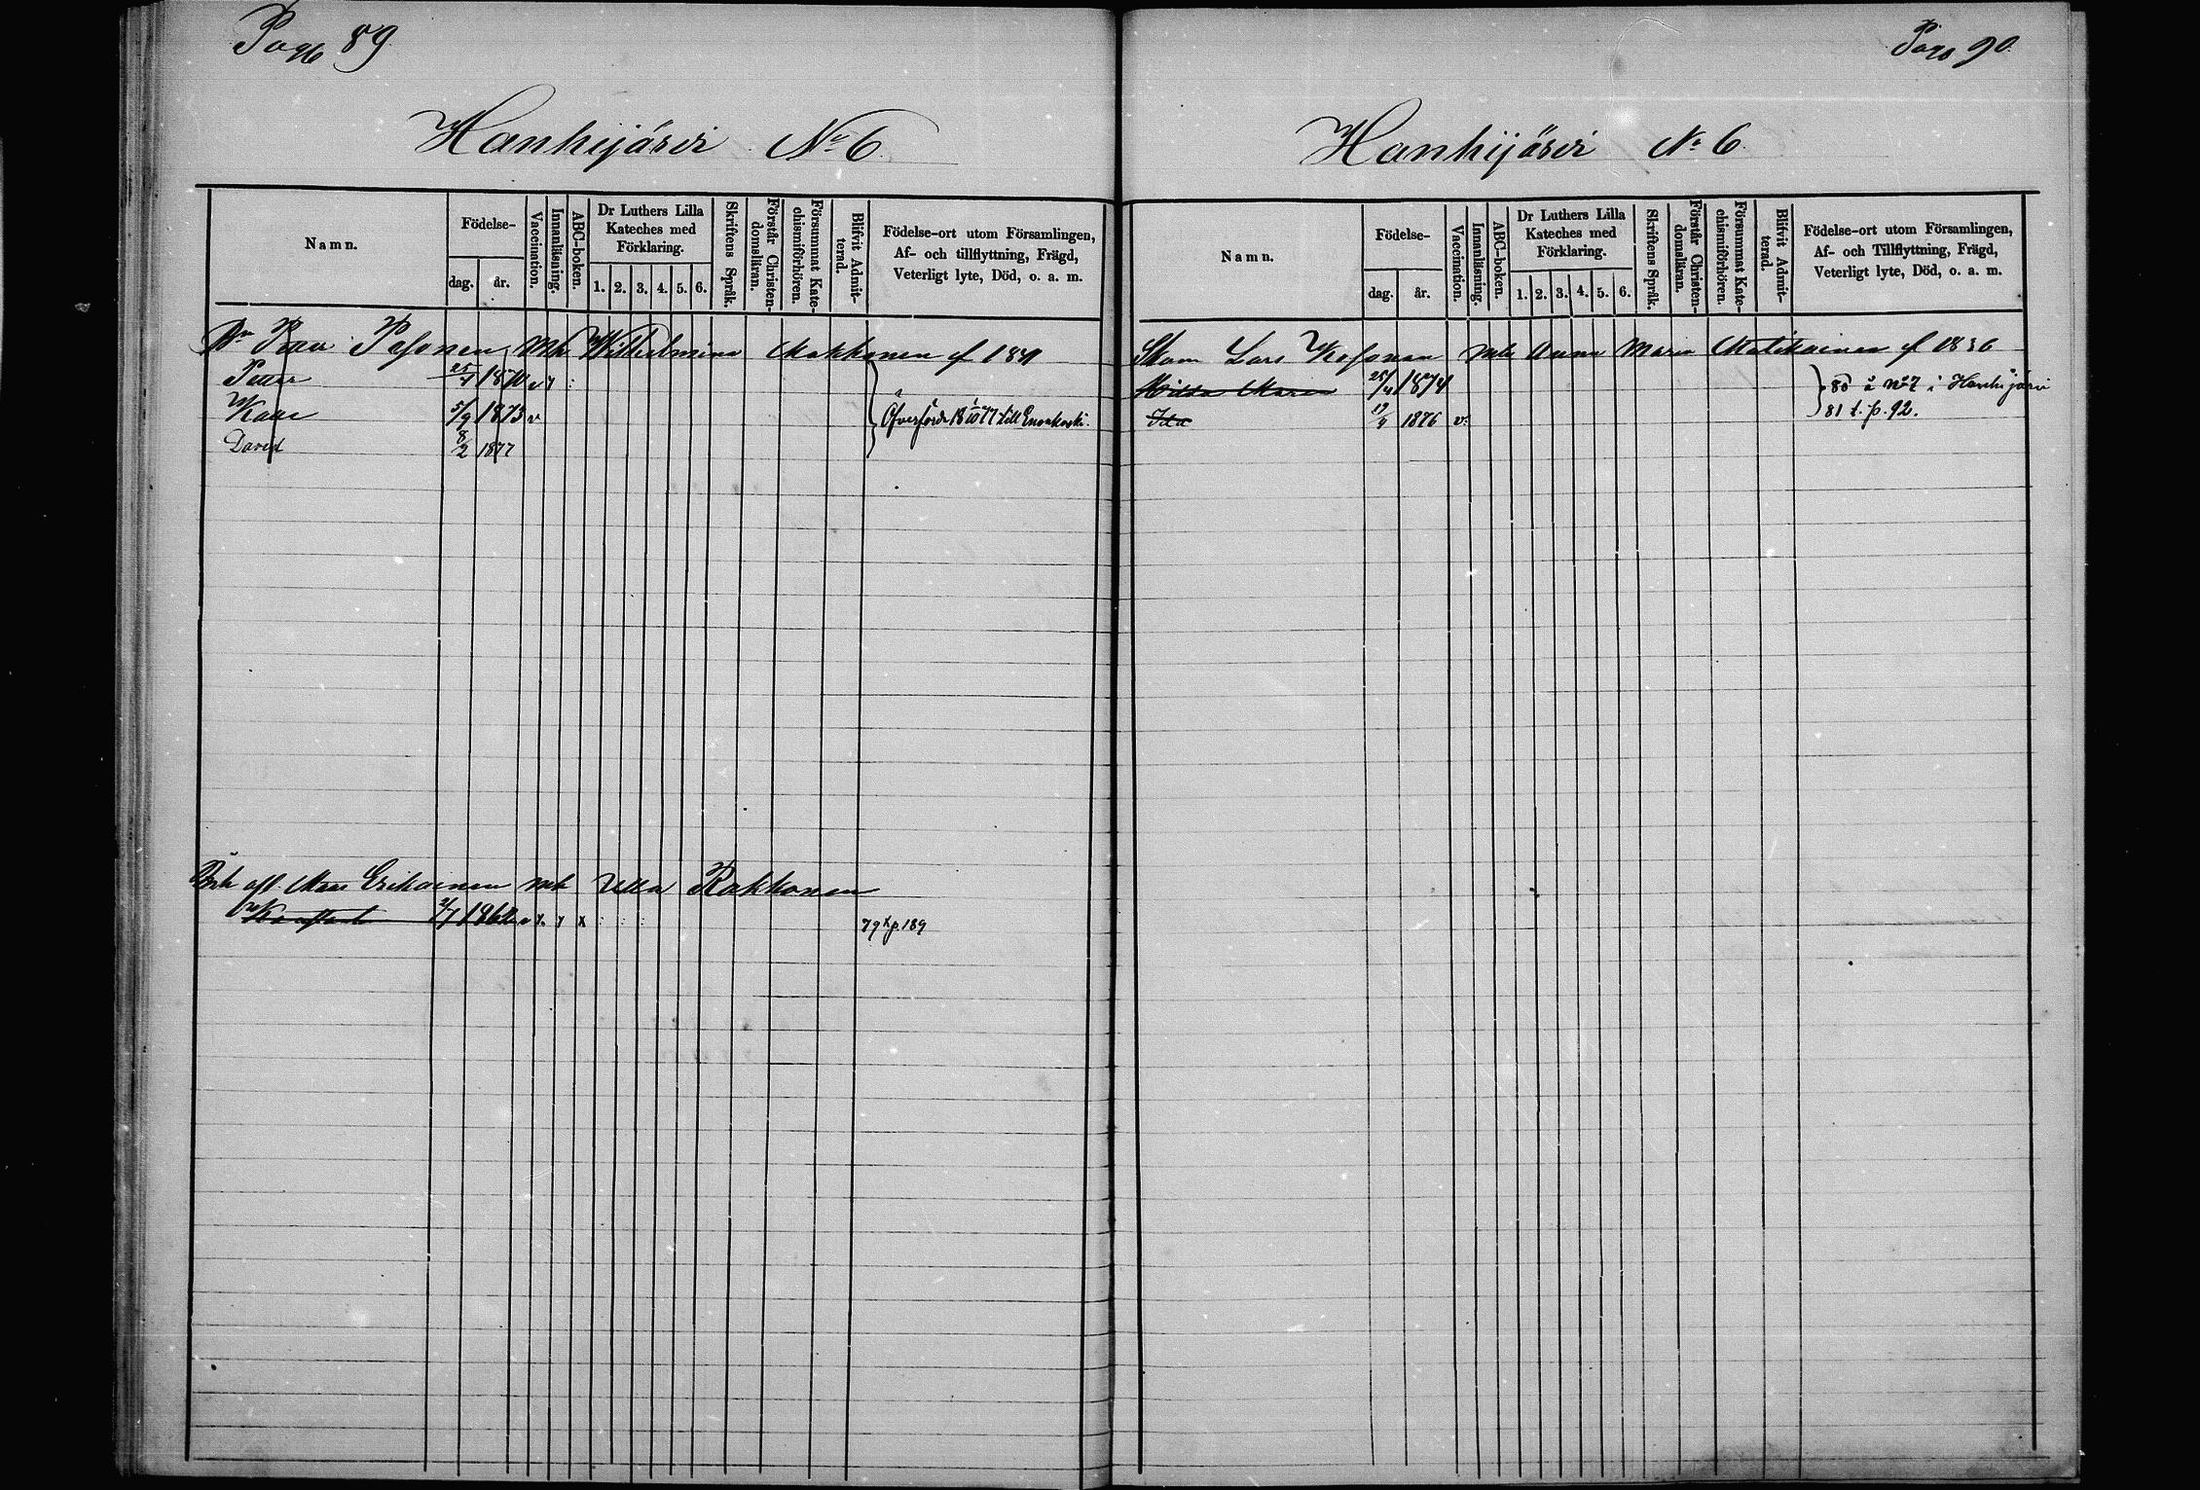 Pag 89
Hanhijärvi No 6
Namn.
Födelse-
dag.
år.
Vaccination.
Innanläsning.
ABC-boken.
Dr Luthers Lilla
Kateches med
Förklaring.
1. 2. 3. 4. 5. 6.
Skriftens Språk.
Förstår Christen-
domsläran.
Försummat Kate-
chismiförhören.
Blifvit Admit-
terad.
Födelse-ort utom Församlingen,
Af- och tillflyttning, Frägd,
Veterligt lyte, Död, o. a. m.
Petter Pesonen mh Wilhelmina Makkonen f 184
Petter 25/4 1870 v
5/9 1873 v
David 8/2 1877
Öfverförde 18 1/10 77 till Enonkoski.
afl. Erikainen mh Ulla Rakkonen
2/7 186
79 p. 189
Pag 90
Hanhijärvi No 6
Namn.
Födelse-
dag.
år.
Vaccination.
Innanläsning.
ABC-boken.
Dr Luthers Lilla
Kateches med
Förklaring.
1. 2. 3. 4. 5. 6.
Skriftens Språk.
Förstår Christen-
domsläran.
Försummat Kate-
chismiförhören.
Blifvit Admit-
terad.
Födelse-ort utom Församlingen,
Af- och Tillflyttning, Frägd,
Veterligt lyte, Död, o. a. m.
Lars mh Anna Maria Matikainen f 1836
Hilda Maria 25/4 1874
80 å No 7 i Hanhijärvi
Ida 19/4 1876 v.
81 t. p. 92.